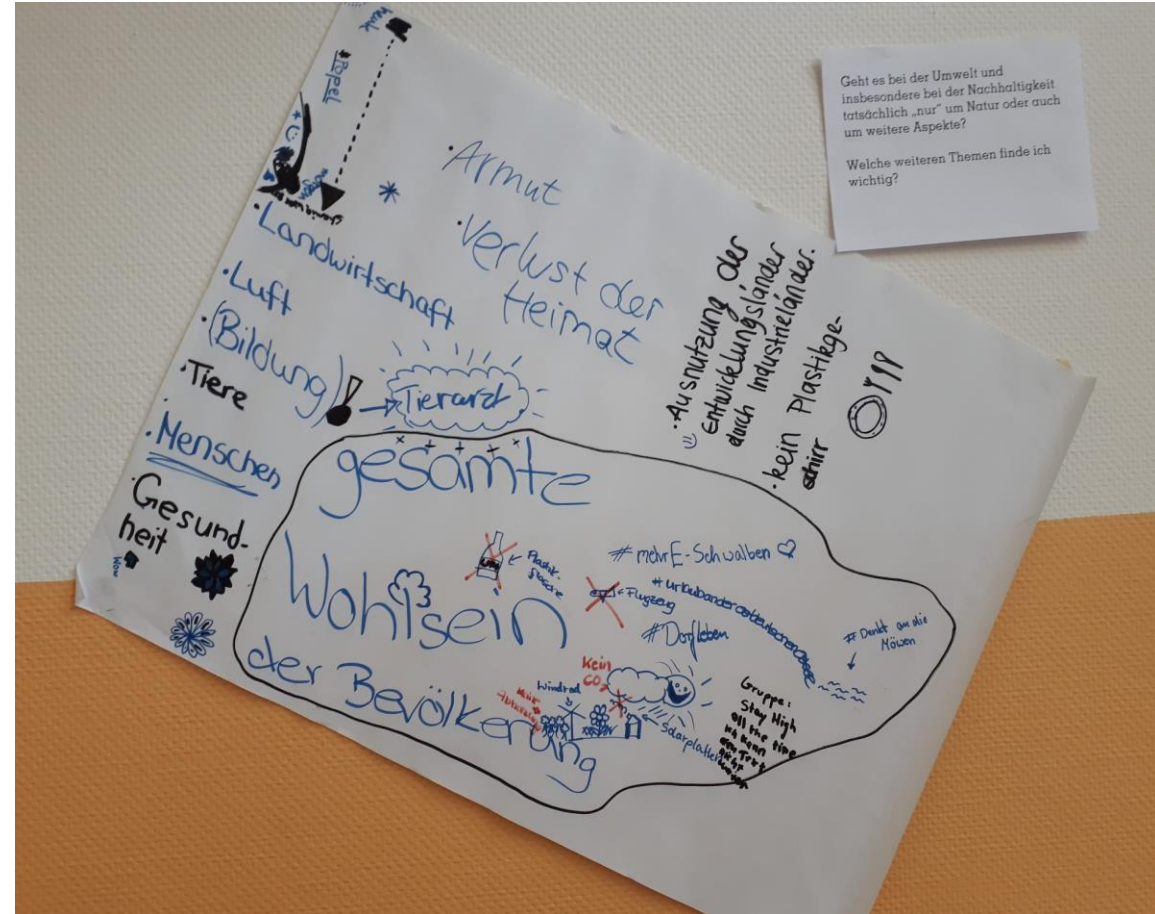 Geht es bei der Umwelt und
insbesondere bei der Nachhaltigkeit
tatsächlich „nur" um Natur oder auch
um weitere Aspekte?
Welche weiteren Themen finde ich
wichtig?
Popel
·Armut
·Verlust der
Heimat
·Landwirtschaft
·Luft
·(Bildung)
Tierarzt
·Tiere
·Menschen
·Gesund-
heit
Wow
·Ausnutzung der
Entwicklungsländer
durch Industrieländer.
·kein Plastikge-
schirr
gesamte
Wohlsein
der Bevölkerung
Plastik-
flasche
Flugzeug
#mehr E-Schwalben
#urlaubanderostdeutschenOstsee
#Dorfleben
#Denkt an die
Möwen
Kein
CO₂
Windrad
Solarplatten
Gruppe:
Stay High
all the time